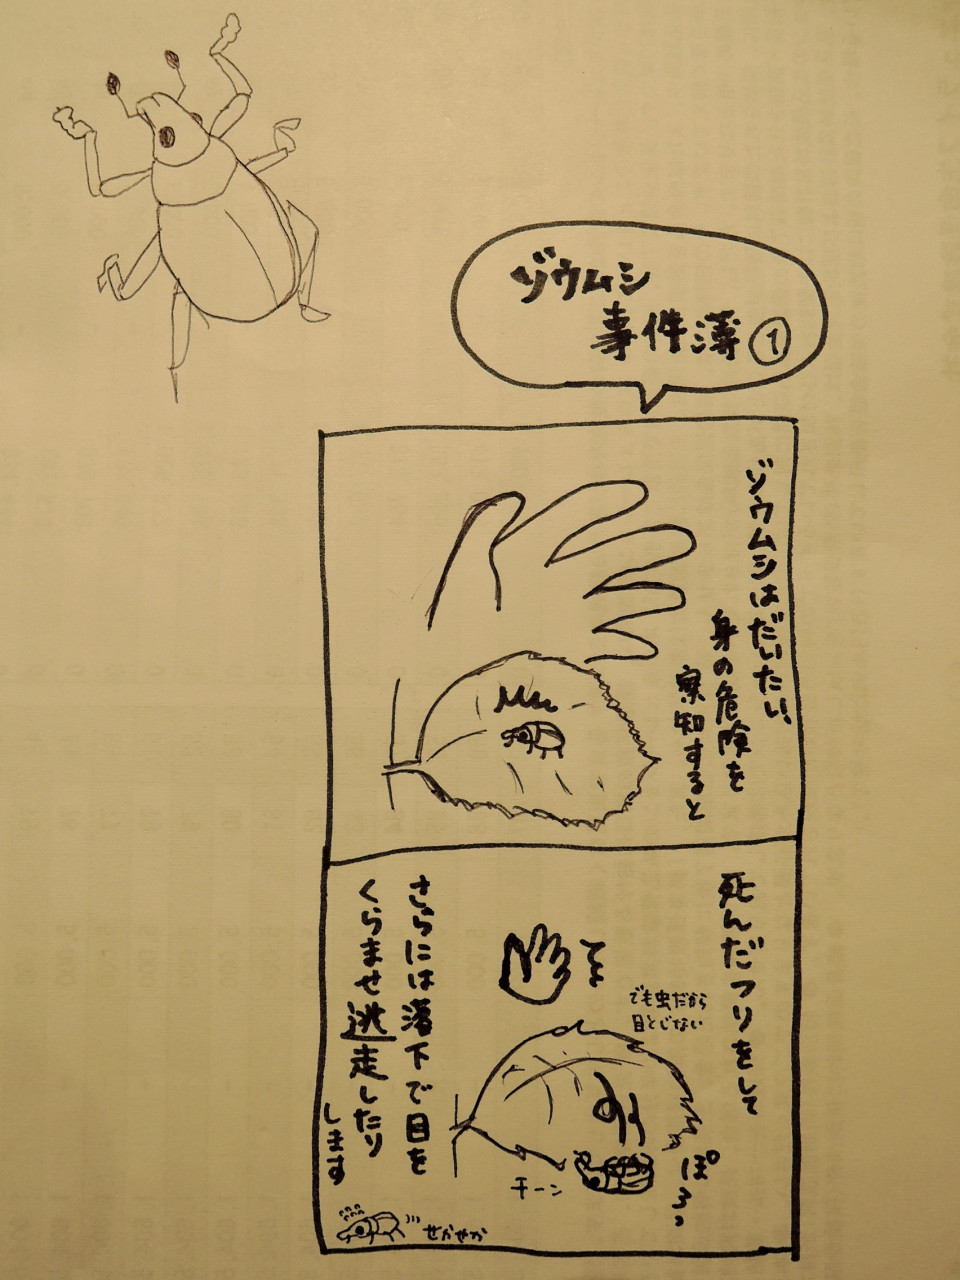 ゾウムシ
事件簿①
ゾウムシはだいたい、
身の危険を
察知すると
死んだフリをして
てょ
でも虫だから
目とじない
ぽろっ
チーン
さらには落下で目を
くらませ逃走したり
します
せかせか